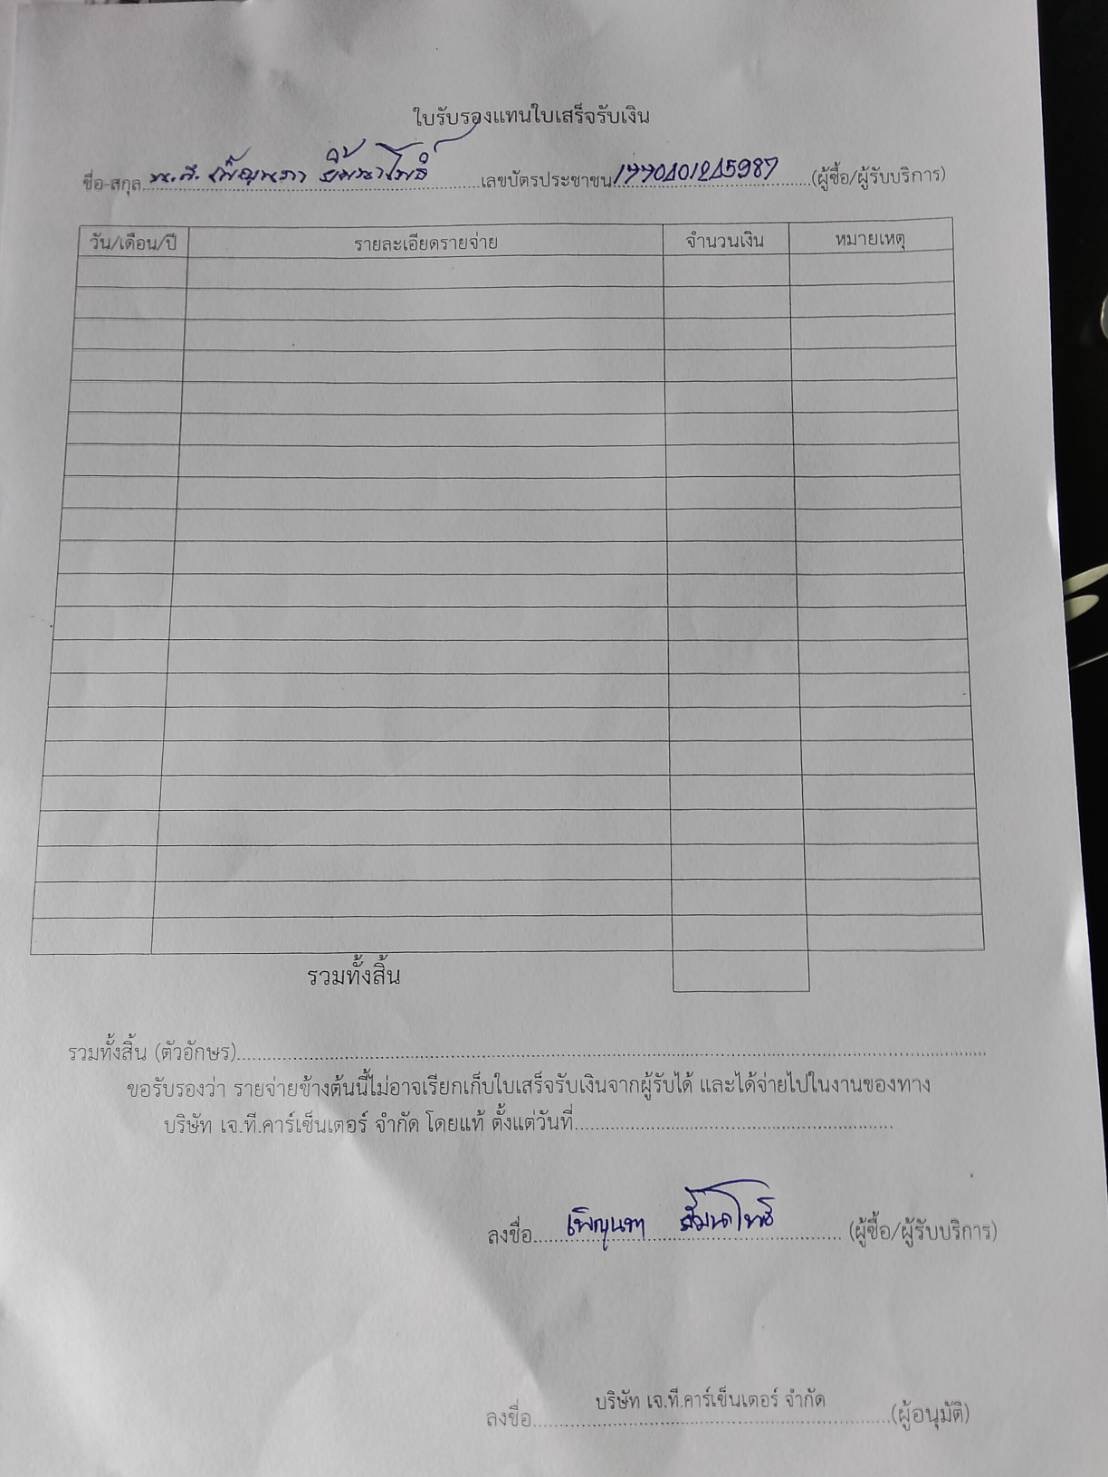 ใบรับรองแทนใบเสร็จรับเงิน
ชื่อ-สกุล น.ส. เพ็ญนภา เลขบัตรประชาชน (ผู้ซื้อ/ผู้รับบริการ)
วัน/เดือน/ปี รายละเอียดรายจ่าย จำนวนเงิน หมายเหตุ
รวมทั้งสิ้น
รวมทั้งสิ้น (ตัวอักษร)
ขอรับรองว่า รายจ่ายข้างต้นนี้ไม่อาจเรียกเก็บใบเสร็จรับเงินจากผู้รับได้ และได้จ่ายไปในงานของทาง
บริษัท เจ.ที.คาร์เซ็นเตอร์ จำกัด โดยแท้ ตั้งแต่วันที่
ลงชื่อ (ผู้ซื้อ/ผู้รับบริการ)
บริษัท เจ.ที.คาร์เซ็นเตอร์ จำกัด
ลงชื่อ (ผู้อนุมัติ)